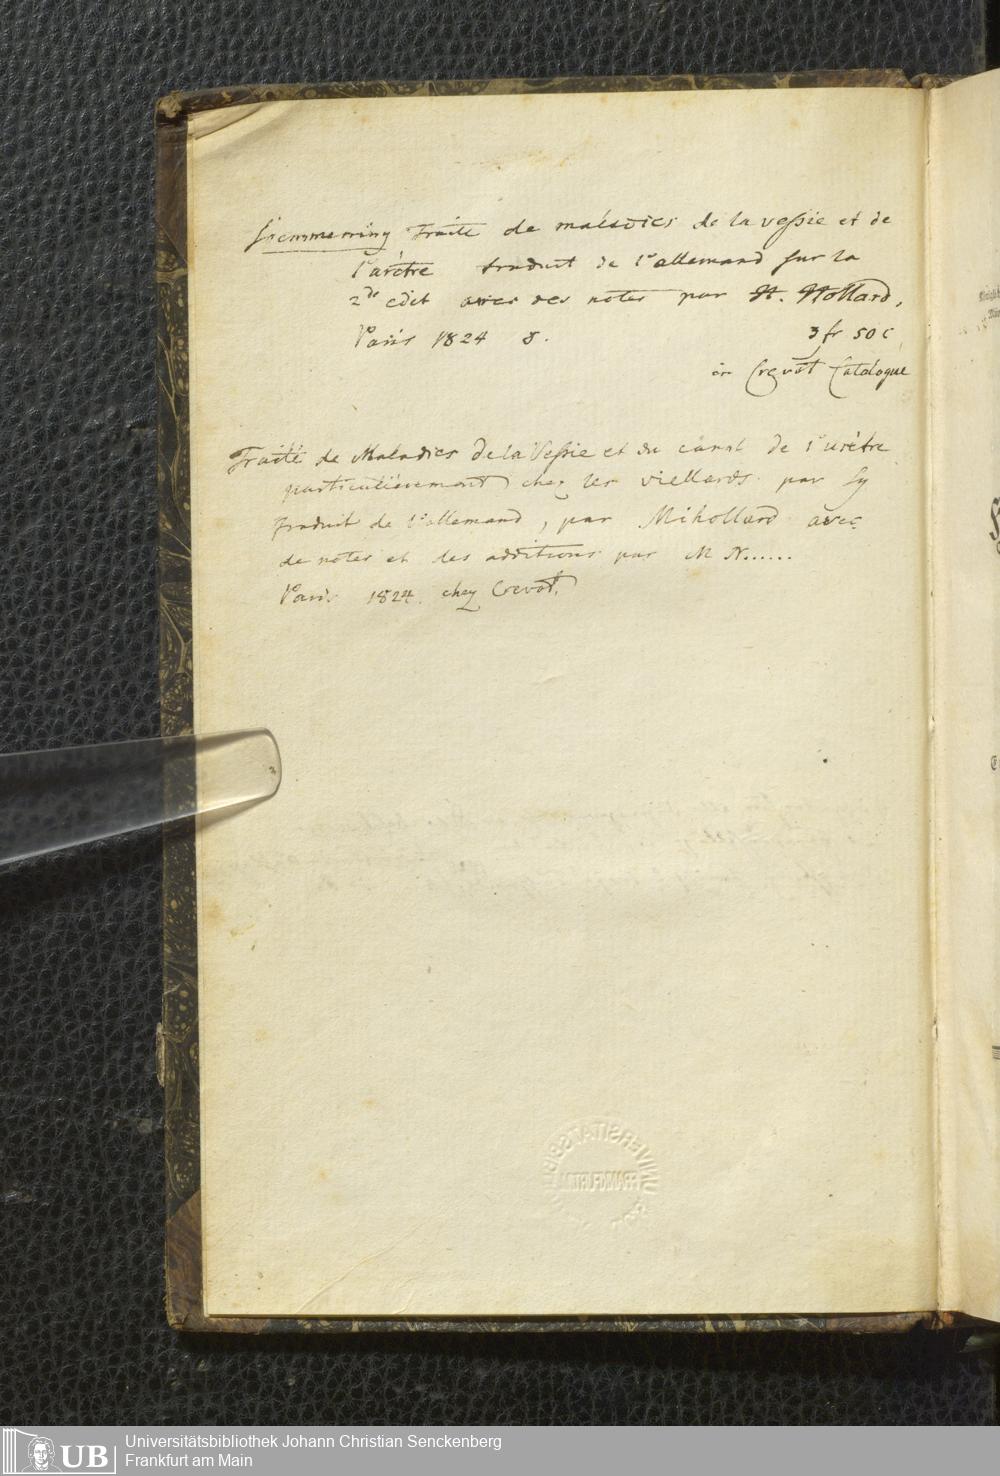 Sœmmerring Traité de maladies de la veſsie et de
l'urètre traduit de l'allemand sur la
2de edit avec des notes par H. Hollard,
Paris 1824 8. 3 fr 50 c
in Crevot Catalogue
Traité de Maladies de la Veſsie et du canal de l'urètre
particulièrement chez les viellards par Sg
traduit de l'allemand, par M. hollard avec
de notes et des additions par M N......
Paris 1824. chez Crevot.
UNIVERSITÄTSBIBL
FRANKFURT M.
UB
Universitätsbibliothek Johann Christian Senckenberg
Frankfurt am Main